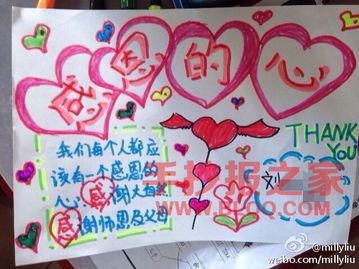 感恩的心
我们每个人都应
该有一个感恩的
心感谢大自然
感谢师恩及父母
THANK
YOU
手抄报之家
@millyliu
weibo.com/millyliu